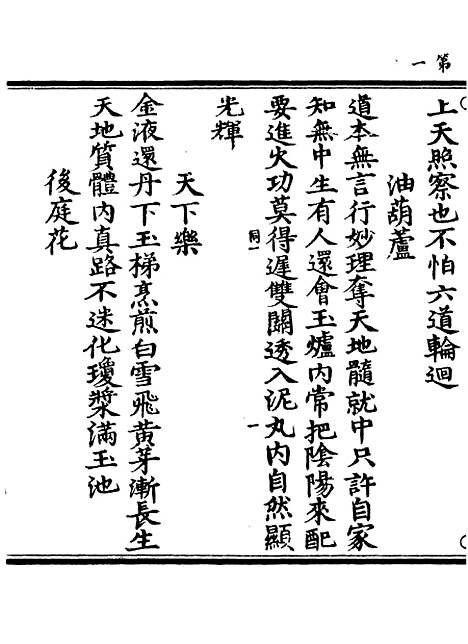 第一
上天照察也不怕六道輪迴
油葫蘆
道本無言行妙理奪天地髓就中只許自家
知無中生有人還會玉爐內常把陰陽來配
要進火功莫得遲雙關透入泥丸內自然顯
同一
一
光輝
天下樂
金液還丹下玉梯烹煎白雪飛黃芽漸長生
天地質體內真路不迷化瓊漿滿玉池
後庭花